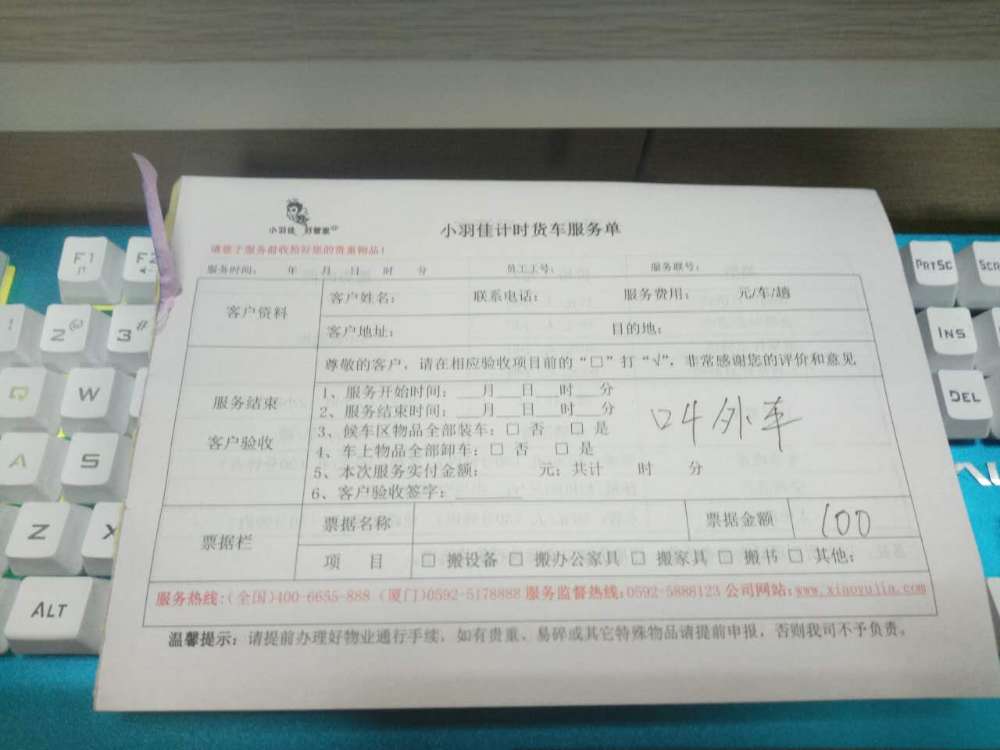 小羽佳 好管家
小羽佳计时货车服务单
请您于服务前收拾好您的贵重物品!
服务时间: 年 月 日 时 分 员工工号: 服务联号:
客户资料
客户姓名: 联系电话: 服务费用: 元/车/趟
客户地址: 目的地:
尊敬的客户,请在相应验收项目前的“□”打“√”,非常感谢您的评价和意见
服务结束
客户验收
1、服务开始时间:___月___日___时___分
2、服务结束时间:___月___日___时___分
3、候车区物品全部装车:□ 否 □ 是
4、车上物品全部卸车:□ 否 □ 是
5、本次服务实付金额: 元;共计 时 分
6、客户验收签字:______
叫外车
票据栏
票据名称 票据金额 100
项 目 □ 搬设备 □ 搬办公家具 □ 搬家具 □ 搬书 □ 其他:
服务热线:(全国)400-6655-888 (厦门)0592-5178888 服务监督热线:0592-5888123 公司网站:www.xiaoyujia.com
温馨提示:请提前办理好物业通行手续,如有贵重、易碎或其它特殊物品请提前申报,否则我司不予负责。
F1
F2
PRTSC
SCR
1
2@
3#
INS
Q
W
DEL
A
S
Z
X
ALT